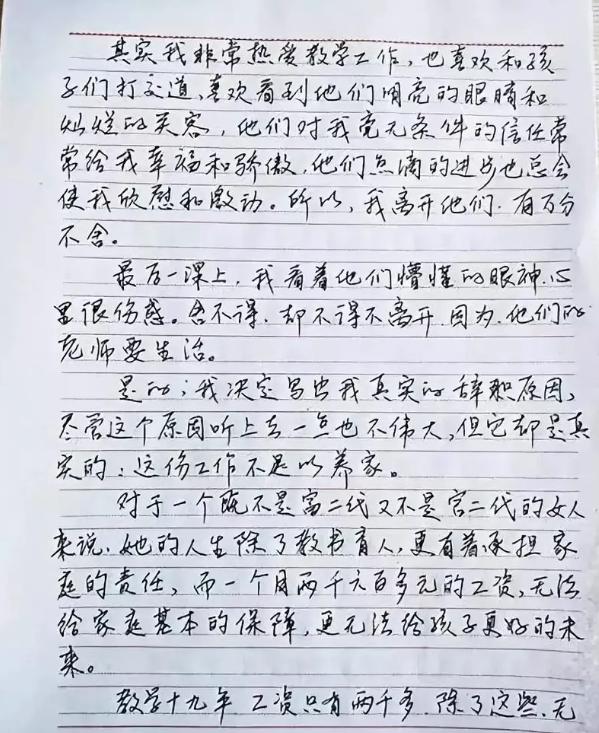 其实我非常热爱教学工作，也喜欢和孩
子们打交道，喜欢看到他们明亮的眼睛和
灿烂的笑容，他们对我毫无条件的信任常
常给我幸福和骄傲，他们点滴的进步也总会
使我欣慰和激动。所以，我离开他们，有万分
不舍。
最后一课上，我看着他们懵懂的眼神，心
里很伤感。舍不得，却不得不离开，因为，他们的
老师要生活。
是的；我决定写出我真实的辞职原因，
尽管这个原因听上去一点也不伟大，但它却是真
实的：这份工作不足以养家。
对于一个既不是富二代又不是官二代的女人
来说，她的人生除了教书育人，更有着承担家
庭的责任，而一个月两千六百多元的工资，无法
给家庭基本的保障，更无法给孩子更好的未
来。
教学十九年，工资只有两千多，除了这些，无